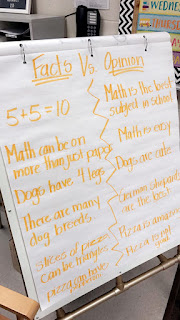 WEDNES
THURS
Facts Vs. Opinion
5+5=10
Math can be on
more than just paper
Dogs have 4 legs
There are many
dog breeds.
slices of pizza
can be triangles
pizza can have
Math is the best
subject in school
Math is easy
Dogs are cute
German shepards
are the best
Pizza is amazing
Pizza is not